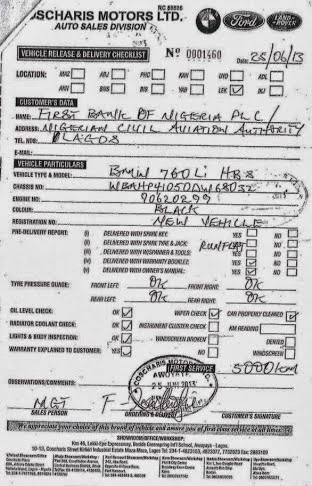 RC 68886
COSCHARIS MOTORS LTD.
AUTO SALES DIVISION
Ford
LAND-ROVER
VEHICLE RELEASE & DELIVERY CHECKLIST
No 0001460
25/06/13
LOCATION:
ABJ
PHC
KAN
UYO
ADL
BEN
YAB
LEK
IKJ
CUSTOMER'S DATA
NAME: FIRST BANK OF NIGERIA PLC/
ADDRESS: NIGERIAN CIVIL AVIATION AUTHORITY
TEL. NOS: LAGOS
E-MAIL:
VEHICLE PARTICULARS
VEHICLE TYPE & MODEL: BMW 760Li HBS
CHASSIS NO: WBAHP41050DW68032
ENGINE NO: 90620299
COLOUR: BLACK
REGISTRATION NO: NEW VEHICLE
PRE-DELIVERY REPORT: (i) DELIVERED WITH SPARE KEY: YES NO
(ii) DELIVERED WITH SPARE TYRE & JACK: RUNFLAT YES NO
(iii) DELIVERED WITH W/SPANNER & TOOLS: YES NO
(iv) DELIVERED WITH WARRANTY BOOKLET: YES NO
(v) DELIVERED WITH OWNER'S MANUAL: YES NO
TYRE PRESSURE GUAGE: FRONT LEFT: OK FRONT RIGHT: OK
REAR LEFT: OK REAR RIGHT: OK
OIL LEVEL CHECK: OK WIPER CHECK CAR PROPERLY CLEANED
RADIATOR COOLANT CHECK: OK INSTRUMENT CLUSTER CHECK KM READING
LIGHTS & BODY INSPECTION: OK WINDSCREEN BROKEN DENIED
WARRANTY EXPLAINED TO CUSTOMER: YES WINDSCREEN
FIRST SERVICE 5000km
COSCHARIS MOTORS LTD.
AWOYAYA
25 JUN 2013
OBSERVATIONS/COMMENTS:
MGT
SALES PERSON
CUSTOMER'S SIGNATURE
We appreciate your choice of this brand of vehicle and assure you of first class service at all times!!
SHOWROOM/OFFICE/WORKSHOP: